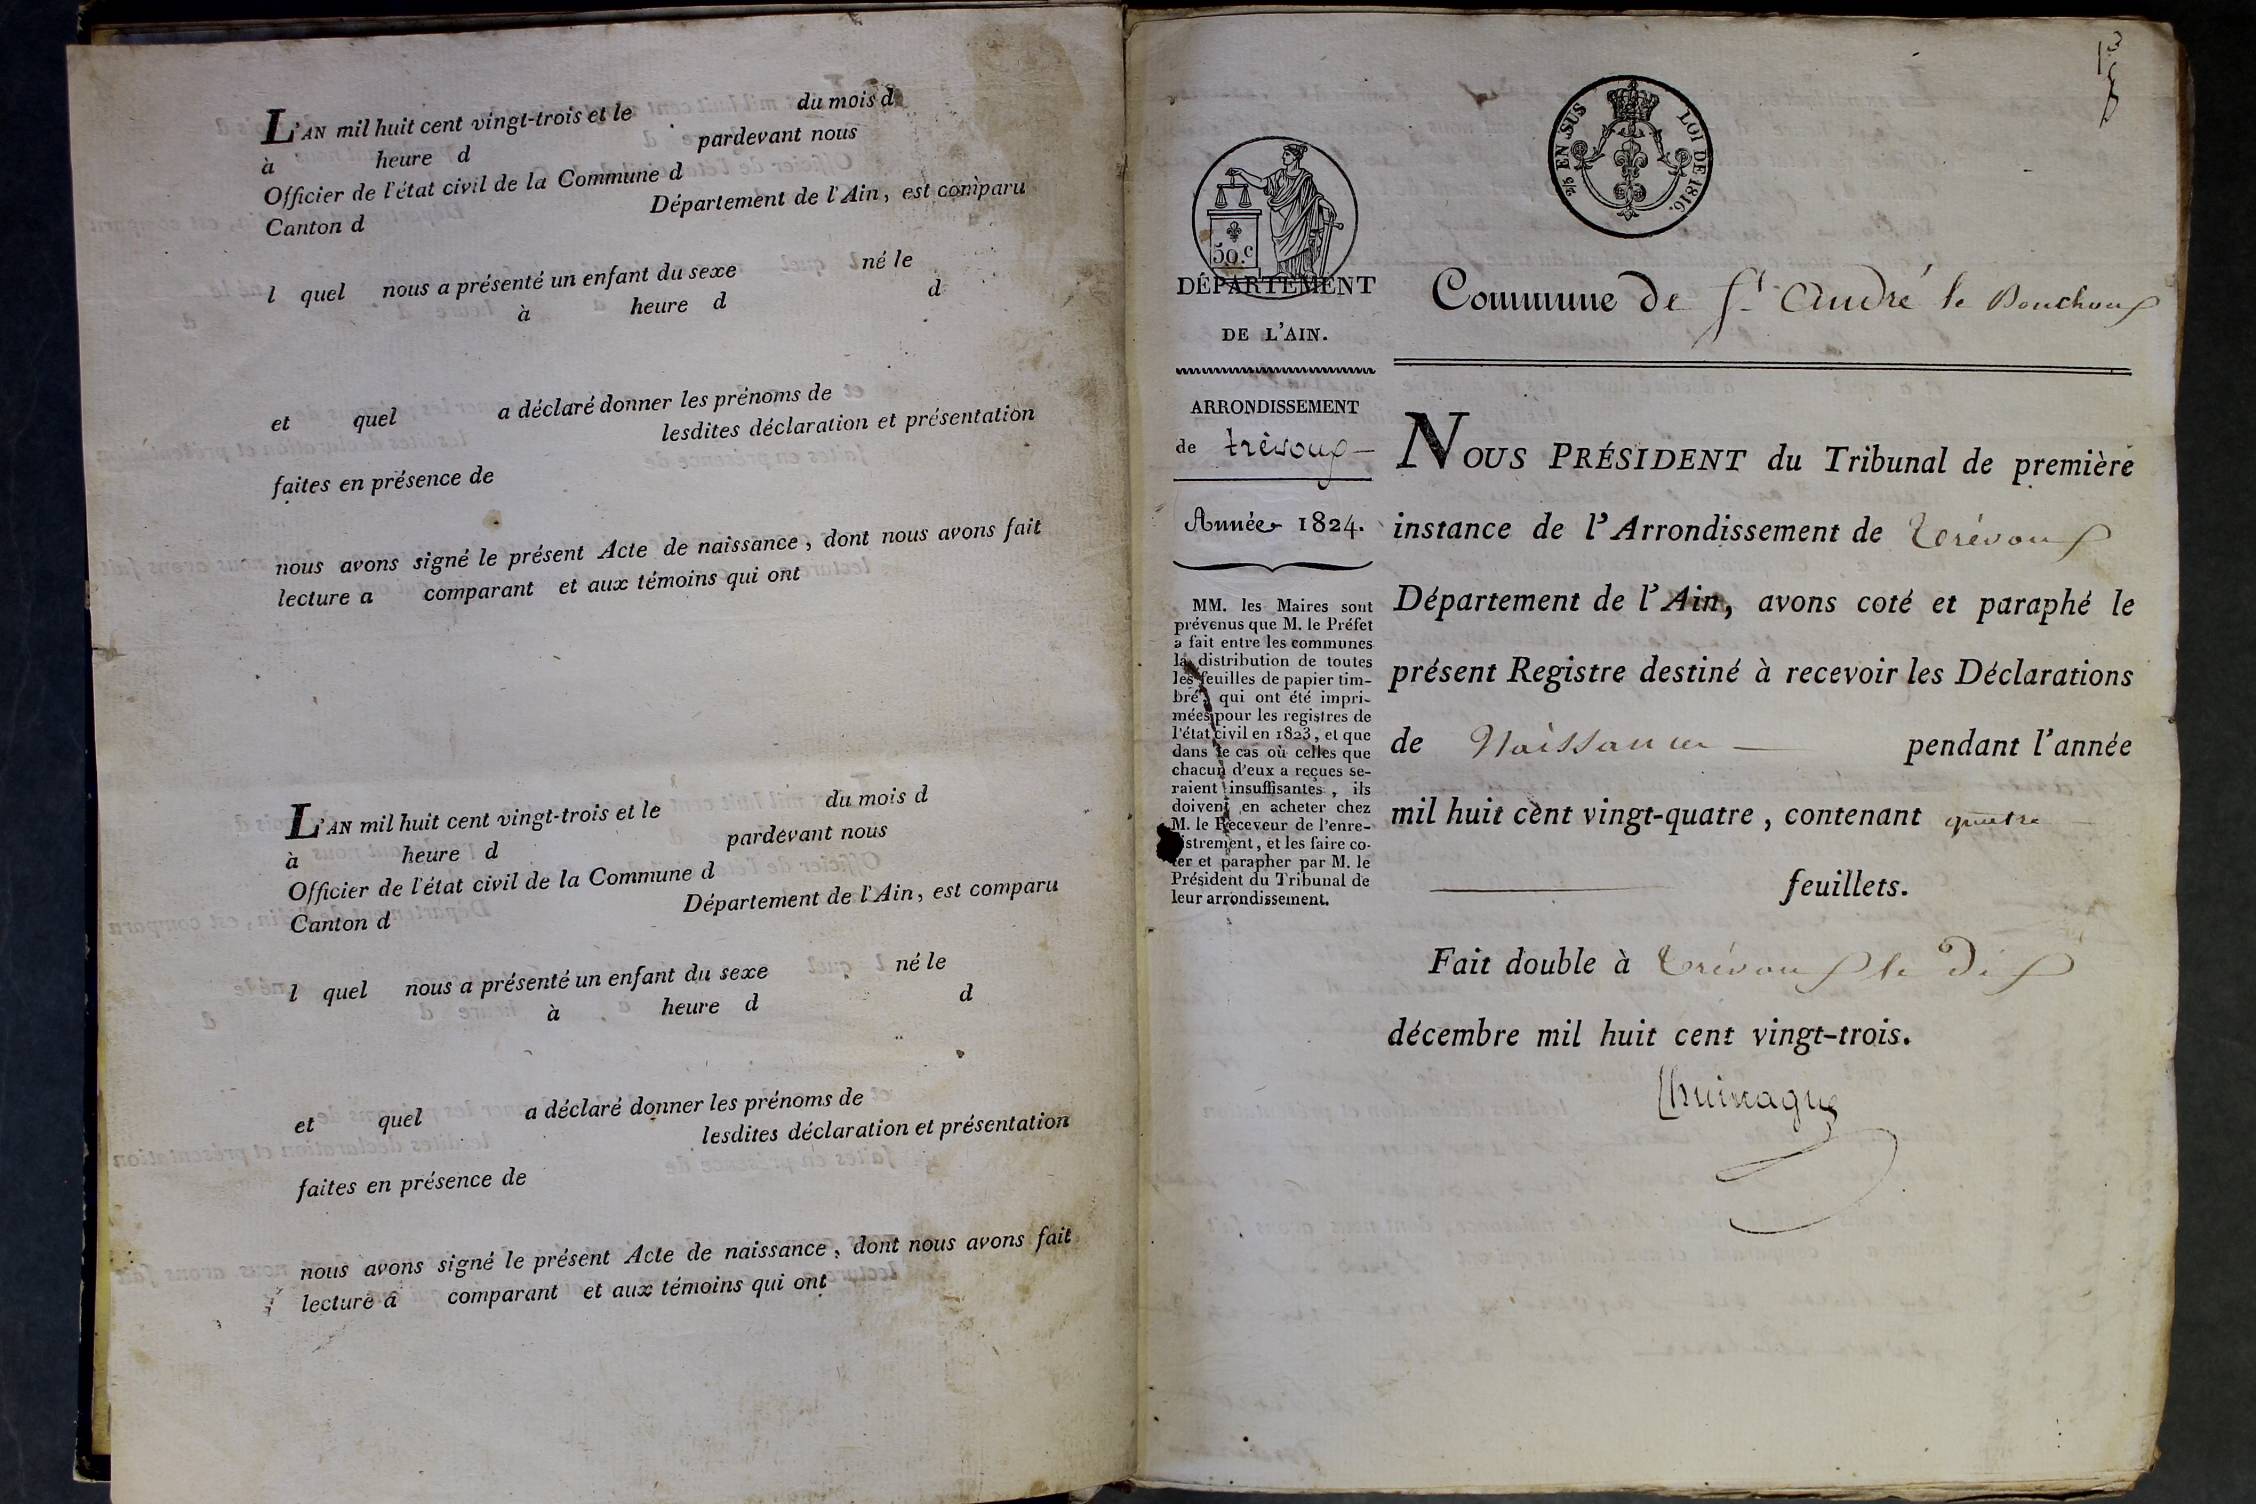 L'AN mil huit cent vingt-trois et le du mois d
à heure d pardevant nous
Officier de l'état civil de la Commune d
Canton d Département de l'Ain, est comparu
l quel nous a présenté un enfant du sexe né le
à heure d d
et quel a déclaré donner les prénoms de
lesdites déclaration et présentation
faites en présence de
nous avons signé le présent Acte de naissance, dont nous avons fait
lecture a comparant et aux témoins qui ont
L'AN mil huit cent vingt-trois et le du mois d
à heure d pardevant nous
Officier de l'état civil de la Commune d
Canton d Département de l'Ain, est comparu
l quel nous a présenté un enfant du sexe né le
à heure d d
et quel a déclaré donner les prénoms de
lesdites déclaration et présentation
faites en présence de
nous avons signé le présent Acte de naissance, dont nous avons fait
lecture a comparant et aux témoins qui ont
EN SUS LOI DE 1816.
50.c
DÉPARTEMENT
DE L'AIN.
ARRONDISSEMENT
de trévoux
Année 1824.
MM. les Maires sont
prévenus que M. le Préfet
a fait entre les communes
la distribution de toutes
les feuilles de papier tim-
bré, qui ont été impri-
mées pour les registres de
l'état civil en 1823, et que
dans le cas où celles que
chacun d'eux a reçues se-
raient insuffisantes, ils
doivent en acheter chez
M. le Receveur de l'enre-
gistrement, et les faire co-
ter et parapher par M. le
Président du Tribunal de
leur arrondissement.
Commune de St. André le Bouchoux
NOUS PRÉSIDENT du Tribunal de première
instance de l'Arrondissement de Trévoux
Département de l'Ain, avons coté et paraphé le
présent Registre destiné à recevoir les Déclarations
de Naissances pendant l'année
mil huit cent vingt-quatre, contenant quatre
feuillets.
Fait double à Trévoux le dix
décembre mil huit cent vingt-trois.